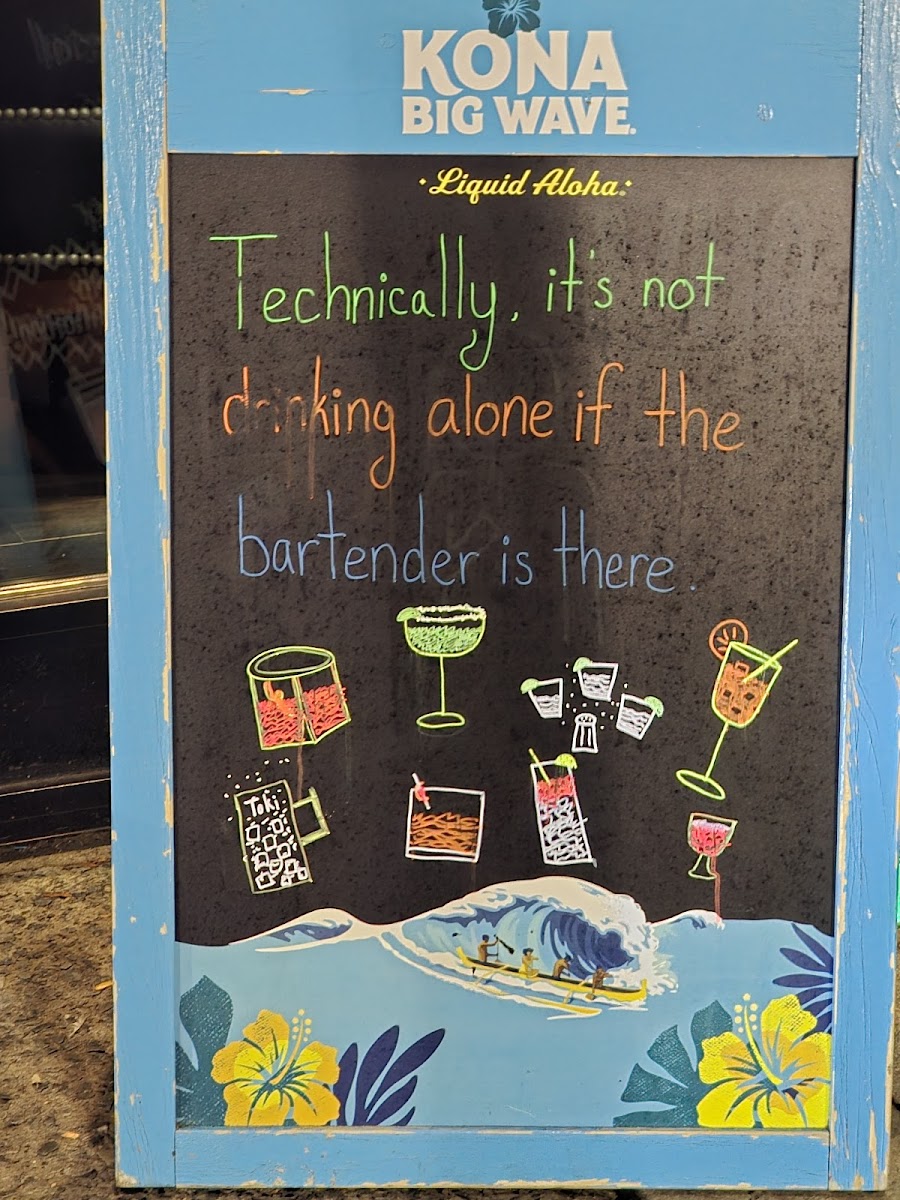 KONA
BIG WAVE.
Liquid Aloha.
Technically, it's not
drinking alone if the
bartender is there.
Toki